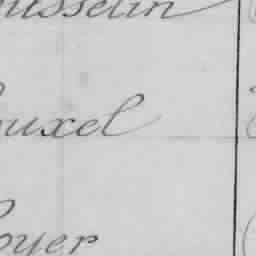 usselin
ouxel
oyer